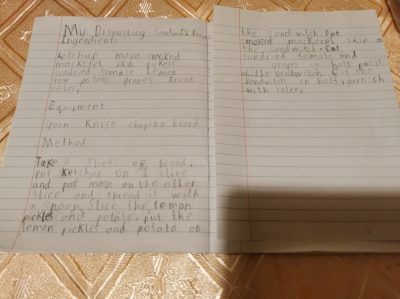 My Disgusting Sandwich
Ingredients
ketchup mayo smoked
mackerel skin pickels
sundried tomato lemon
raw potato grapes bread
celery
Equipment
spoon Knife chopping board
Method
Take 2 slices of bread,
put ketchup on 1 slice
and put mayo on the other
slice and spread it with
a spoon, slice the lemon
pickles and potato. put the
lemon pickles and potato on
the sandwich. Put
smoked mackerel skin in
the sandwich. Cut
sundried tomato and
grapes in half
the sandwich. Cut the
sandwich in half, garnish
with celery